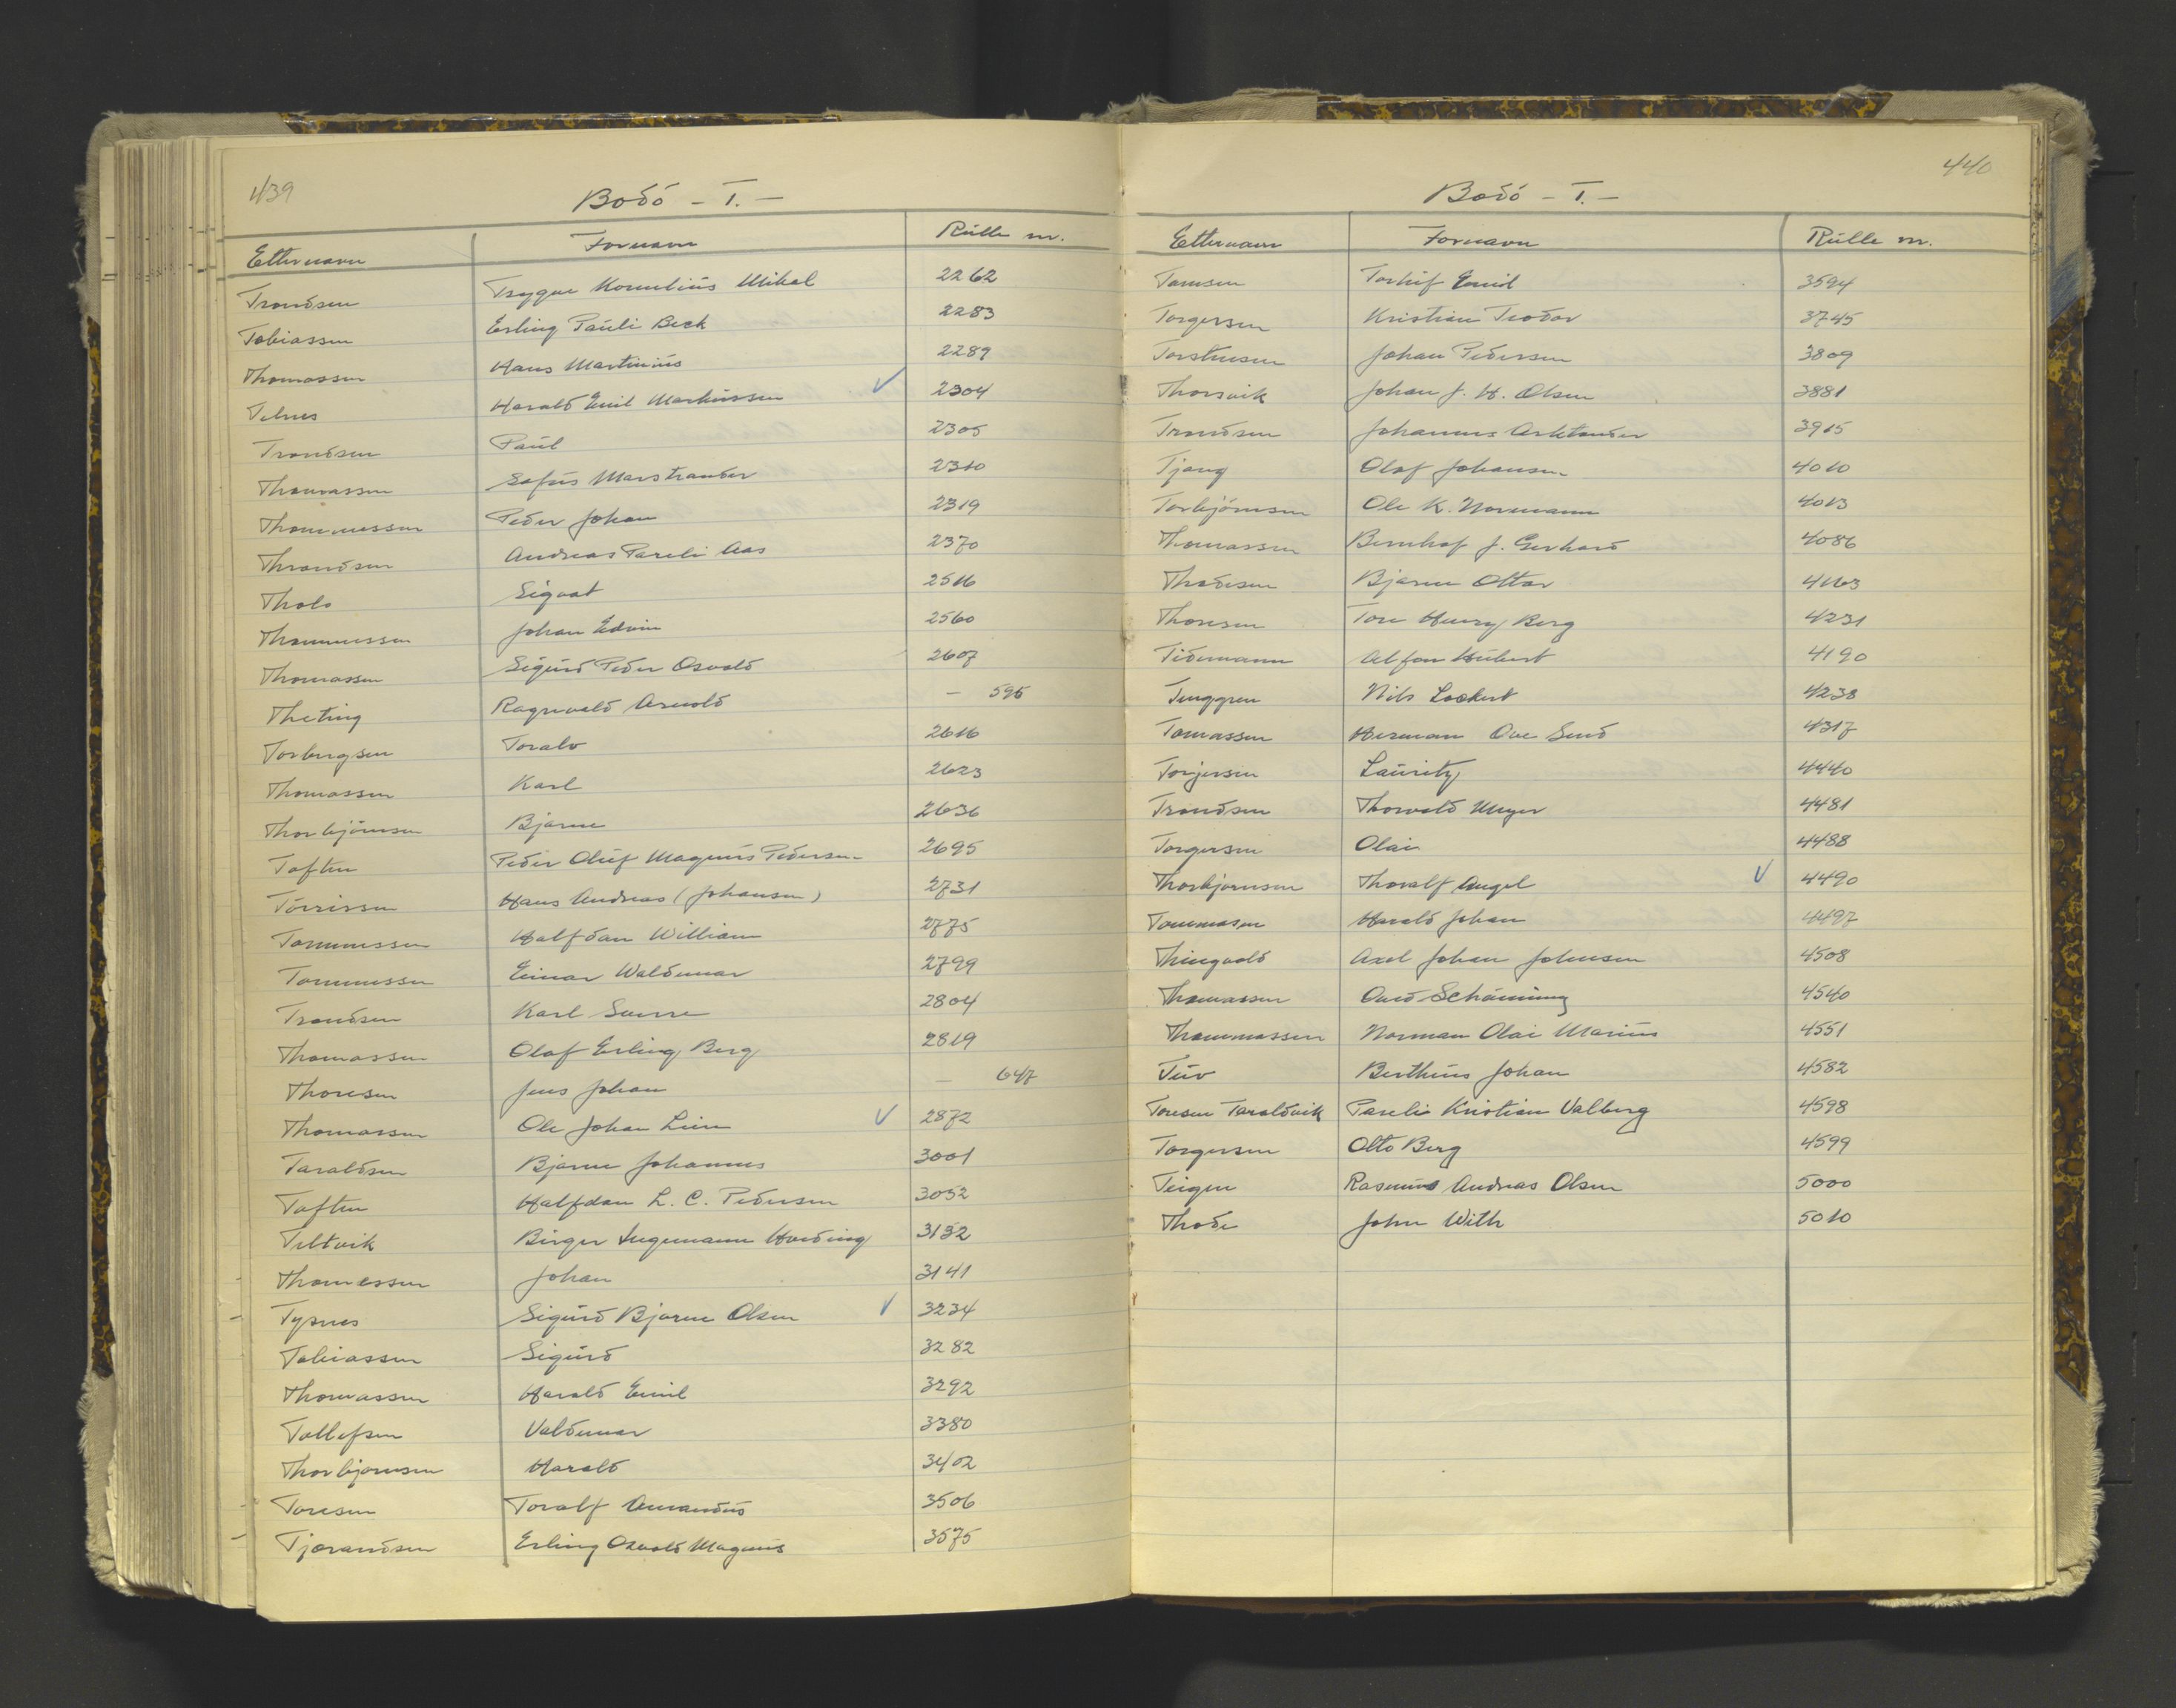 439
Bodö - T. -
Etternavn Fornavn Rulle nr.
Trondsen Trygve Kornelius Mikal 2262
Tobiassen Erling Pauli Beck 2283
Thomassen Hans Martinius 2289
Telnes Harald Emil Markussen ✓ 2304
Trondsen Paul 2305
Thomassen Sofus Marstrander 2310
Thommessen Peder Johan 2319
Throndsen Andreas Pareli Aas 2370
Tholo Sigvat 2516
Thommessen Johan Edvin 2560
Thomassen Sigurd Peder Osvald 2607
Theting Ragnvald Arnold — 596
Torbergsen Toralv 2616
Thomassen Karl 2623
Thorbjörnsen Bjarne 2636
Toften Peder Oluf Magnus Pedersen 2695
Törrissen Hans Andreas (Johansen) 2731
Tommessen Halfdan William 2775
Tommessen Einar Waldemar 2799
Trondsen Karl Sverre 2804
Thomassen Olaf Erling Berg 2819
Thoresen Jens Johan — 647
Thomassen Ole Johan Lien ✓ 2872
Taraldsen Bjarne Johannes 3001
Toften Halfdan L. C. Pedersen 3052
Teltvik Birger Ingemann Harding 3132
Thomessen Johan 3141
Tysnes Sigurd Bjarne Olsen ✓ 3234
Tobiassen Sigurd 3282
Thomassen Harald Emil 3292
Tollefsen Valdemar 3380
Thorbjornsen Harald 3402
Toresen Toralf Amandus 3506
Tjærandsen Erling Osvald Magnus 3575
440
Bodö - T. -
Etternavn Fornavn Rulle nr.
Tomsen Torleif Emil 3594
Torgersen Kristian Teodor 3745
Torstensen Johan Pedersen 3809
Thorsvik Johan J. H. Olsen 3881
Trondsen Johannes Arktander 3915
Tjong Olaf Johansen 4010
Torbjörnsen Ole K. Normann 4013
Thomassen Bernhof J. Gerhard 4086
Thodesen Bjarne Ottar 4163
Thoresen Tore Henry Berg 4231
Tidemann Alfon Hubert 4190
Tenggren Nils Lockert 4238
Tomassen Herman Ove Send 4317
Torjersen Lauritz 4440
Trondsen Thorvald Meyer 4481
Torgersen Olai 4488
Thorbjornsen Thoralf Angel ✓ 4490
Tommasen Harald Johan 4497
Thingvold Axel Johan Johnsen 4508
Thomassen Ovid Schöning 4540
Thommassen Norman Olai Marius 4551
Tuv Berthus Johan 4582
Toresen Taraldvik Pareli Kristian Valberg 4598
Torgersen Otto Berg 4599
Teigen Rasmus Andreas Olsen 5000
Thode John With 5010